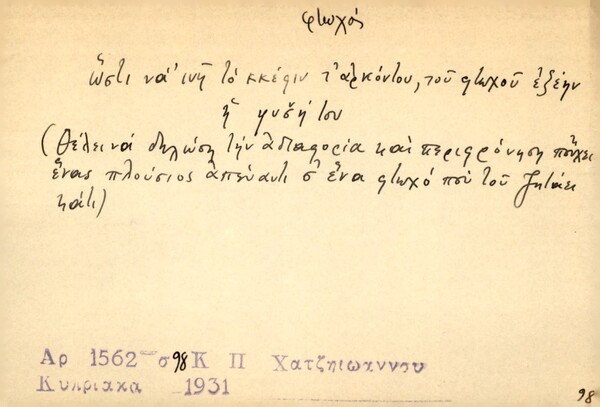 φτωχός
ὥστι νά 'ινῇ τό κκέφιν τ' ἀρκόντου, τοῦ φτωχοῦ ἐξέην
ἡ ψυσ̌ή του
(Θέλει νά δηλώσῃ τήν ἀδιαφορία καί περιφρόνηση ποὔχει
ἕνας πλούσιος ἀπέναντι σ' ἕνα φτωχό πού τοῦ ζητάει
κάτι)
Αρ 1562 σ 98 Κ Π Χατζηιωαννου
Κυπριακα 1931
98